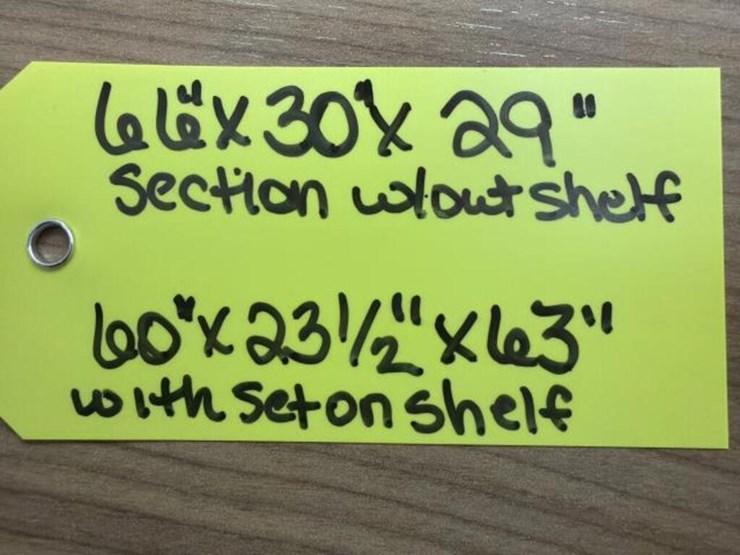 66" X 30" X 29"
Section w/out shelf
60" X 23 1/2" X 63"
with set on shelf